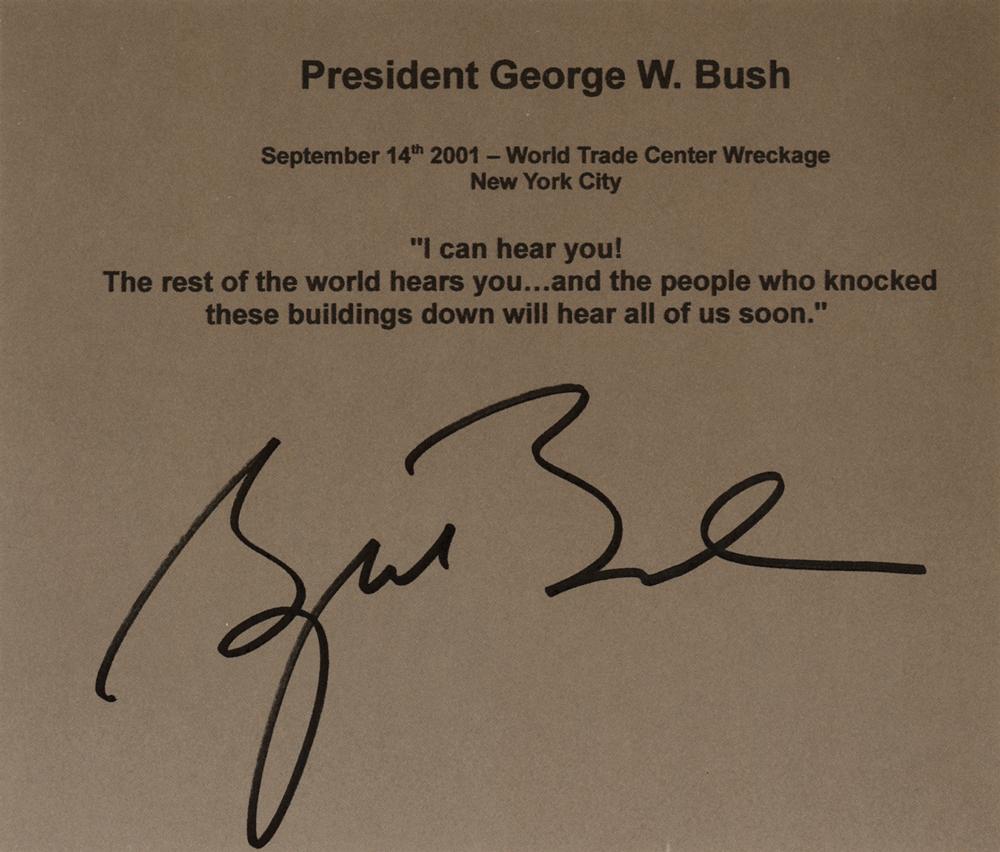 President George W. Bush
September 14th 2001 – World Trade Center Wreckage
New York City
"I can hear you!
The rest of the world hears you...and the people who knocked
these buildings down will hear all of us soon."